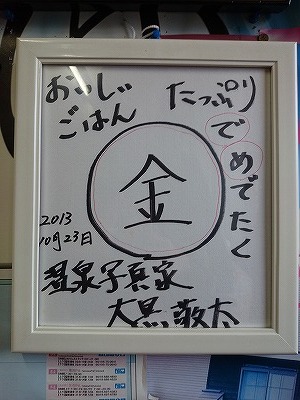 おうじ
ごはん
たっぷり
でめでたく
金
2013
10月23日
温泉写真家
大黒敬太